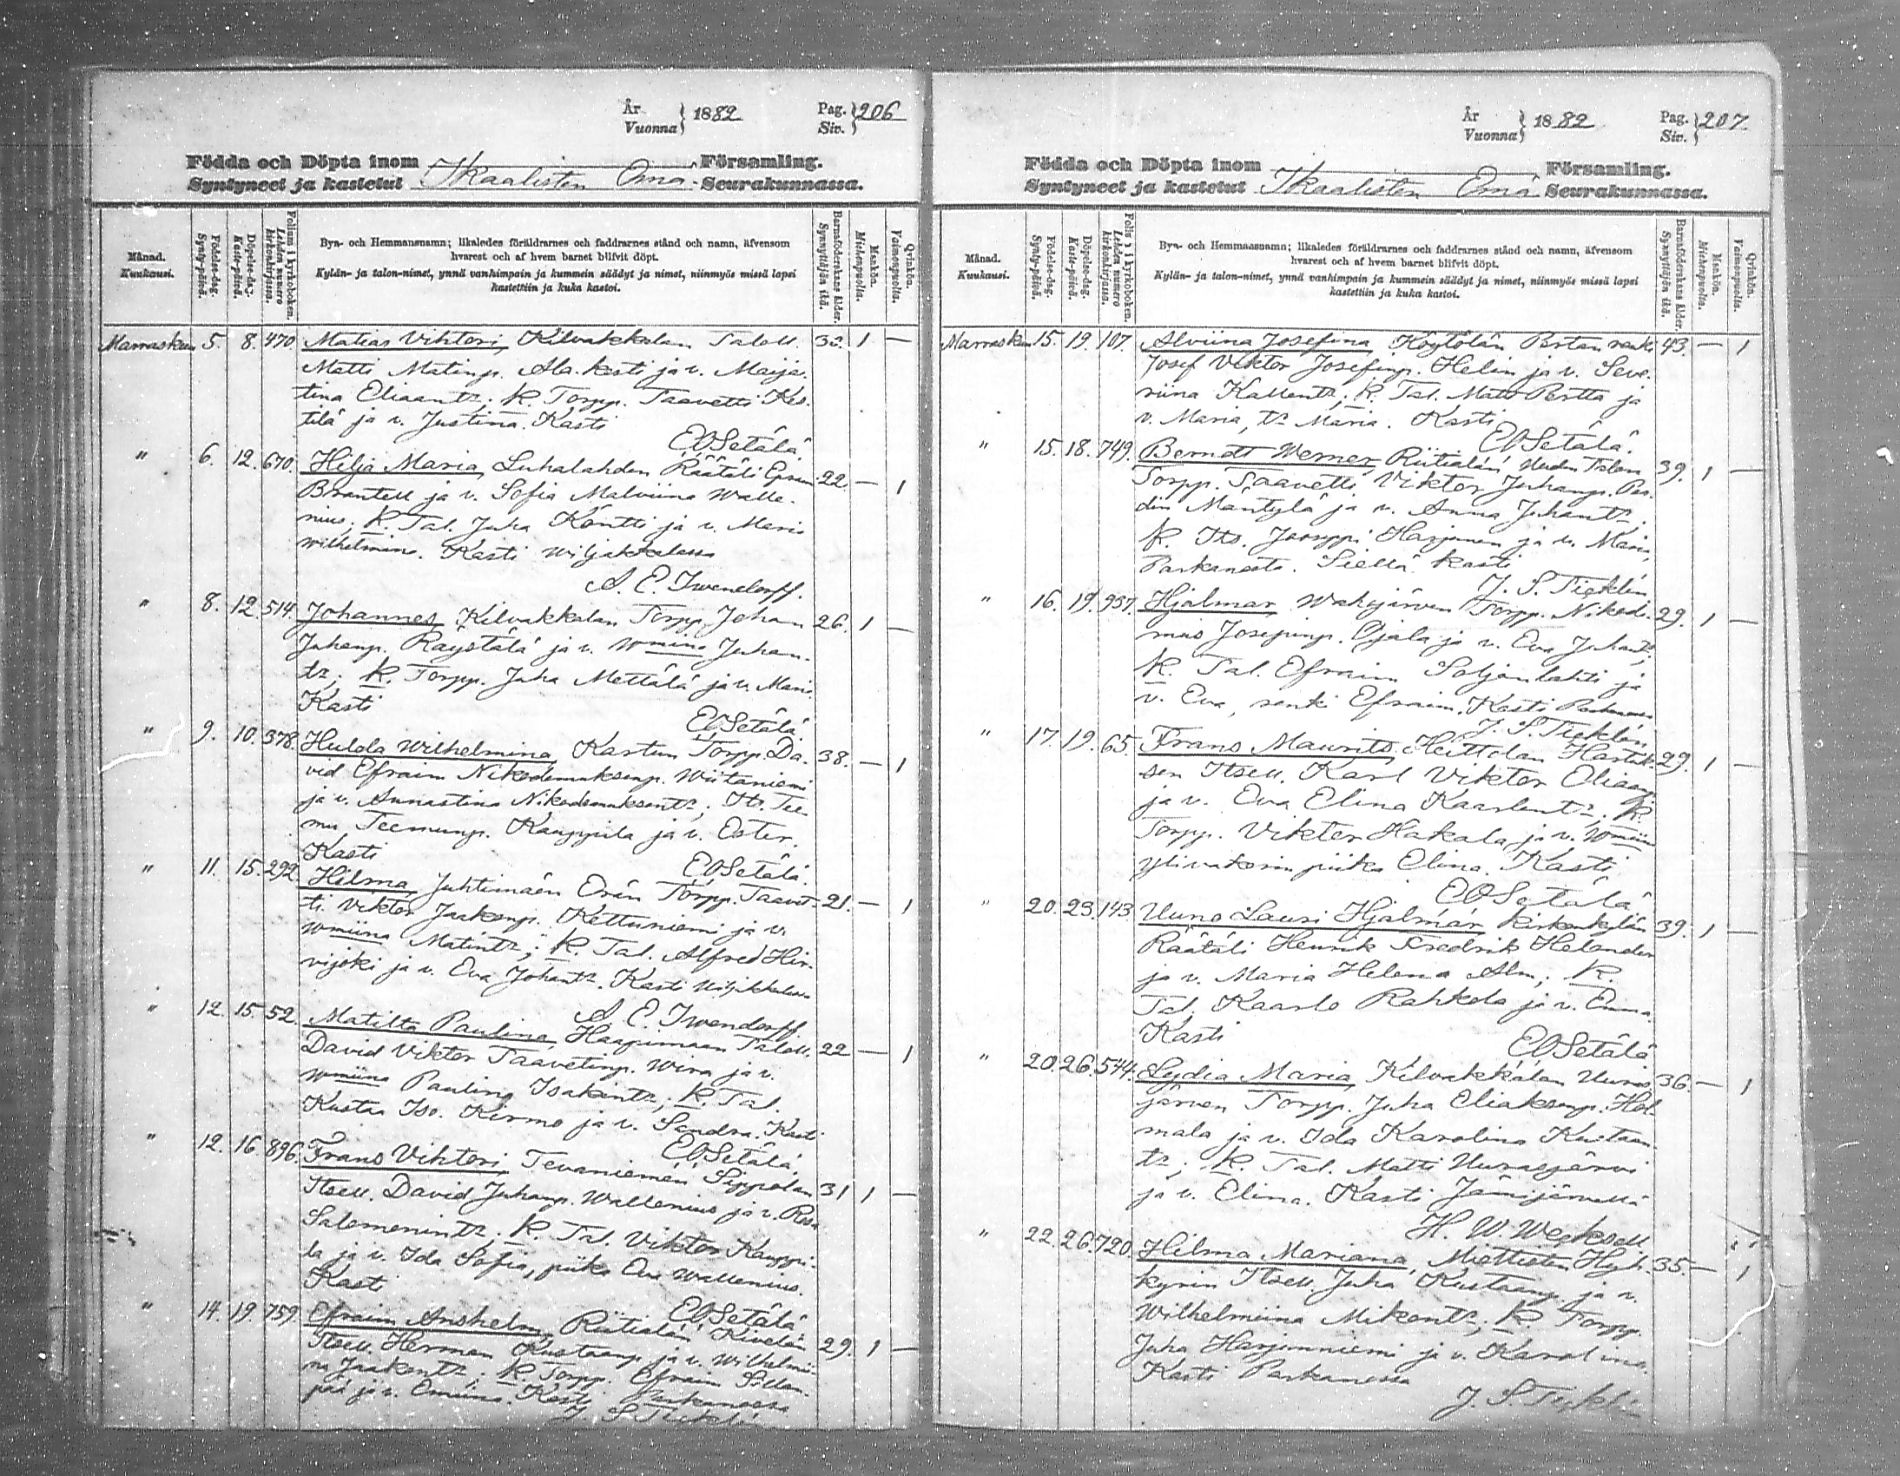 År
Vuonna } 1882
Pag.
Siv. } 206
Födda och Döpta inom Församling.
Syntyneet ja kastetut Ikaalisten Emä Seurakunnassa.
Månad.
Kuukausi.
Födelse-dag.
Synty-päivä.
Döpelse-dag.
Kaste-päivä.
Folium i kyrkoboken.
Lehden numero kirkonkirjassa.
Byn- och Hemmansnamn; likaledes föräldrarnes och faddrarnes stånd och namn, äfvensom
hvarest och af hvem barnet blifvit döpt.
Kylän- ja talon-nimet, ynnä vanhimpain ja kummein säädyt ja nimet, niinmyös missä lapsi
kastettiin ja kuka kastoi.
Barnaföderskans ålder.
Synnyttäjän ikä.
Mankön.
Miehenpuolta.
Qvinkön.
Vaimonpuolta.
Marraskuu 5. 8. 470. Matias Vihtori, Kilvakkalan Taloll. 32. 1 —
Matti Matinp. Ala-kesti ja v. Maija-
tina Eliaantr. K. Torpp. Taavetti Kes-
tilä ja v. Justina. Kasti
E O Setälä.
" 6. 12. 670. Hilja Maria, Luhalahden Räätäli Epraim 22. — 1
Brantell ja v. Sofia Malviina Walle-
nius. K. Tal. Juha Kontti ja v. Maria
Wilhelmina. Kasti Wiljakkalassa
A. E. Iwendorff.
" 8. 12. 514. Johannes, Kilvakkalan Torpp. Johan 26. 1 —
Juhanp. Räystälä ja v. Wmiina Juhan-
tr; K. Torpp. Juha Mettälä ja v. Maria
Kasti
E O Setälä.
" 9. 10. 378. Hulda Wilhelmina, Kartun Torpp. Da- 38. — 1
vid Efraim Nikodemuksenp. Wiitaniemi
ja v. Annastina Nikodemuksentr; Its. Tee-
mu Teemunp. Kauppila ja v. Ester.
Kasti
E O Setälä.
" 11. 15. 292. Hilma, Juhtimäen Erän Torpp. Taavet- 21. — 1
ti Viktor Jaakonp. Kettuniemi ja v.
Wmiina Matintr; K. Tal. Alfred Hir-
vijoki ja v. Eva Johantr. Kasti Wiljakkalassa
A. E. Iwendorff
" 12. 15. 52. Matilta Paulina, Haapimaan Taloll. 22 — 1
David Viktor Taavetinp. Wira ja v.
Wmiina Paulina Isakintr; K. Tal.
Kustaa Iso-Kirmo ja v. Sandra. Kasti
E O Setälä.
" 12. 16. 896. Frans Vihtori, Tevaniemen Seppolan 31 1 —
Itsell. David Juhanp. Wallenius ja v. Rosa
Salomonintr. K. Tal. Viktor Kauppi-
la ja v. Ida Sofia, piika Eva Wallenius.
Kasti
E O Setälä
" 14. 19. 759. Efraim Anshelm, Riitialan Kivelän 29. 1 —
Itsell. Herman Kustaanp. ja v. Wilhelmii-
na Jaakontr; K. Torpp. Efraim Sillan-
pää ja v. Emiina. Kasti Parkanossa
J. S. Ticklén
År
Vuonna } 1882
Pag.
Siv. } 207.
Födda och Döpta inom Församling.
Syntyneet ja kastetut Ikaalisten Emä Seurakunnassa.
Månad.
Kuukausi.
Födelse-dag.
Synty-päivä.
Döpelse-dag.
Kaste-päivä.
Folium i kyrkoboken.
Lehden numero kirkonkirjassa.
Byn- och Hemmansnamn; likaledes föräldrarnes och faddrarnes stånd och namn, äfvensom
hvarest och af hvem barnet blifvit döpt.
Kylän- ja talon-nimet, ynnä vanhimpain ja kummein säädyt ja nimet, niinmyös missä lapsi
kastettiin ja kuka kastoi.
Barnaföderskans ålder.
Synnyttäjän ikä.
Mankön.
Miehenpuolta.
Qvinkön.
Vaimonpuolta.
Marraskuu 15. 19. 107. Alviina Josefina, Röytölän Pertan renki 43. — 1
Josef Viktor Josefinp. Helin ja v. Seve-
riina Kallentr; K. Tal. Matti Pertta ja
v. Maria, tr Maria. Kasti
E O Setälä.
" 15. 18. 749. Berndt Werner, Riitialan Uuden Talon 39. 1 —
Torpp. Taavetti Viktor Juhanp.
Mäntylä ja v. Anna Juhantr;
K. Its. Jooseppi Harjunen ja v. Maria
Parkanosta. Siellä kasti
J. S. Ticklén
" 16. 19. 957. Hjalmar, Wahojärven Torpp. Nikode- 29. 1 —
mus Josefinp. Ojala ja v. Eva Juhantr;
K. Tal. Efraim Soljanlahti ja
v. Eva, renki Efraim. Kasti Parkanossa
J. S. Ticklén
" 17. 19. 65. Frans Maurits, Heittolan 29. 1 —
sen Itsell. Karl Viktor Eliaanp.
ja v. Eva Elina Kaarlentr. K.
Torpp. Viktor Hakala ja v. Wmiina
ylivakerin piika Elina. Kasti
E O Setälä
" 20. 23. 143. Uuno Lauri Hjalmar, Kirkonkylän 39. 1 —
Räätäli Henrik Fredrik Helander
ja v. Maria Helena Alm; K.
Tal. Kaarlo Rahkola ja v. Emma.
Kasti
E O Setälä
" 20. 26. 544. Lydia Maria, Kilvakkalan Uuras- 36. — 1
järven Torpp. Juha Eliaksenp. Hel-
mala ja v. Ida Karolina Kustaan-
tr; K. Tal. Matti Uurasjärvi
ja v. Elina. Kasti Jämijärvellä
H. W. Weeksell
" 22. 26. 720. Hilma Mariana, Miettisten Hyh- 35. — 1
kyrin Itsell. Juha Kustaanp. ja v.
Wilhelmiina Mikontr; K. Torpp.
Juha Harjunniemi ja v. Karolina.
Kasti Parkanossa
J. S. Ticklén